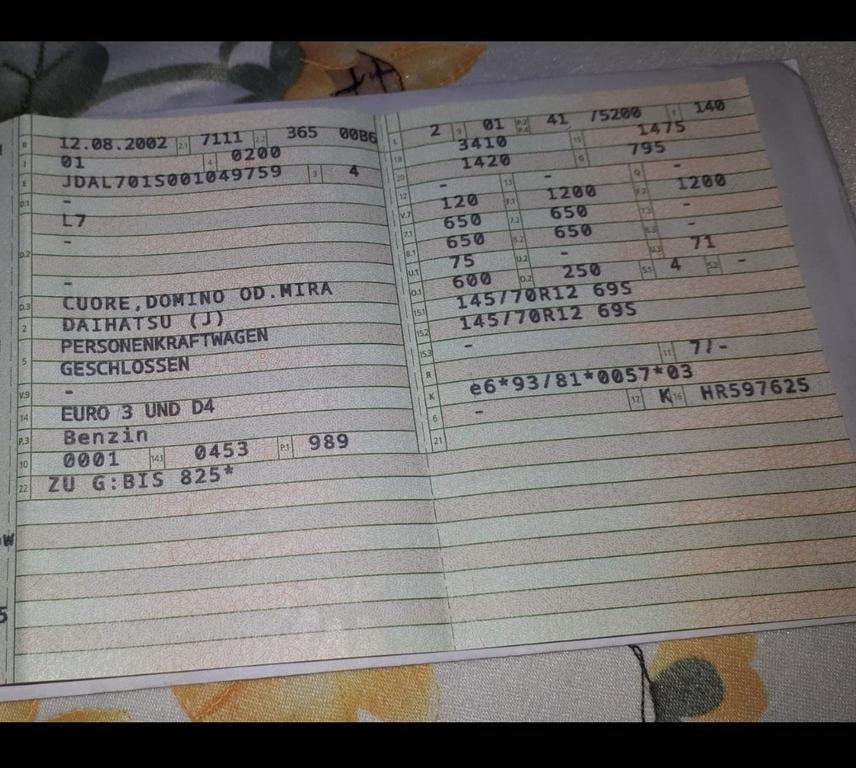 B 12.08.2002 2.1 7111 2.2 365 0086
J 01 4 0200
E JDAL701S001049759 3 4
D.1 -
L7
D.2 -
-
D.3 CUORE,DOMINO OD.MIRA
2 DAIHATSU (J)
5 PERSONENKRAFTWAGEN
GESCHLOSSEN
V.9 -
14 EURO 3 UND D4
P.3 Benzin
10 0001 14.1 0453 P.1 989
22 ZU G:BIS 825*
L 2 9 01 P.2 P.4 41 /5200 T 140
18 3410 19 1475
20 1420 G 795
12 - 13 - Q -
V.7 120 F.1 1200 F.2 1200
7.1 650 7.2 650 7.3 -
8.1 650 8.2 650 8.3 -
U.1 75 U.2 - U.3 71
O.1 600 O.2 250 S.1 4 S.2 -
15.1 145/70R12 69S
15.2 145/70R12 69S
15.3 -
R 11 7/-
K e6*93/81*0057*03
6 - 17 K 16 HR597625
21
W
5